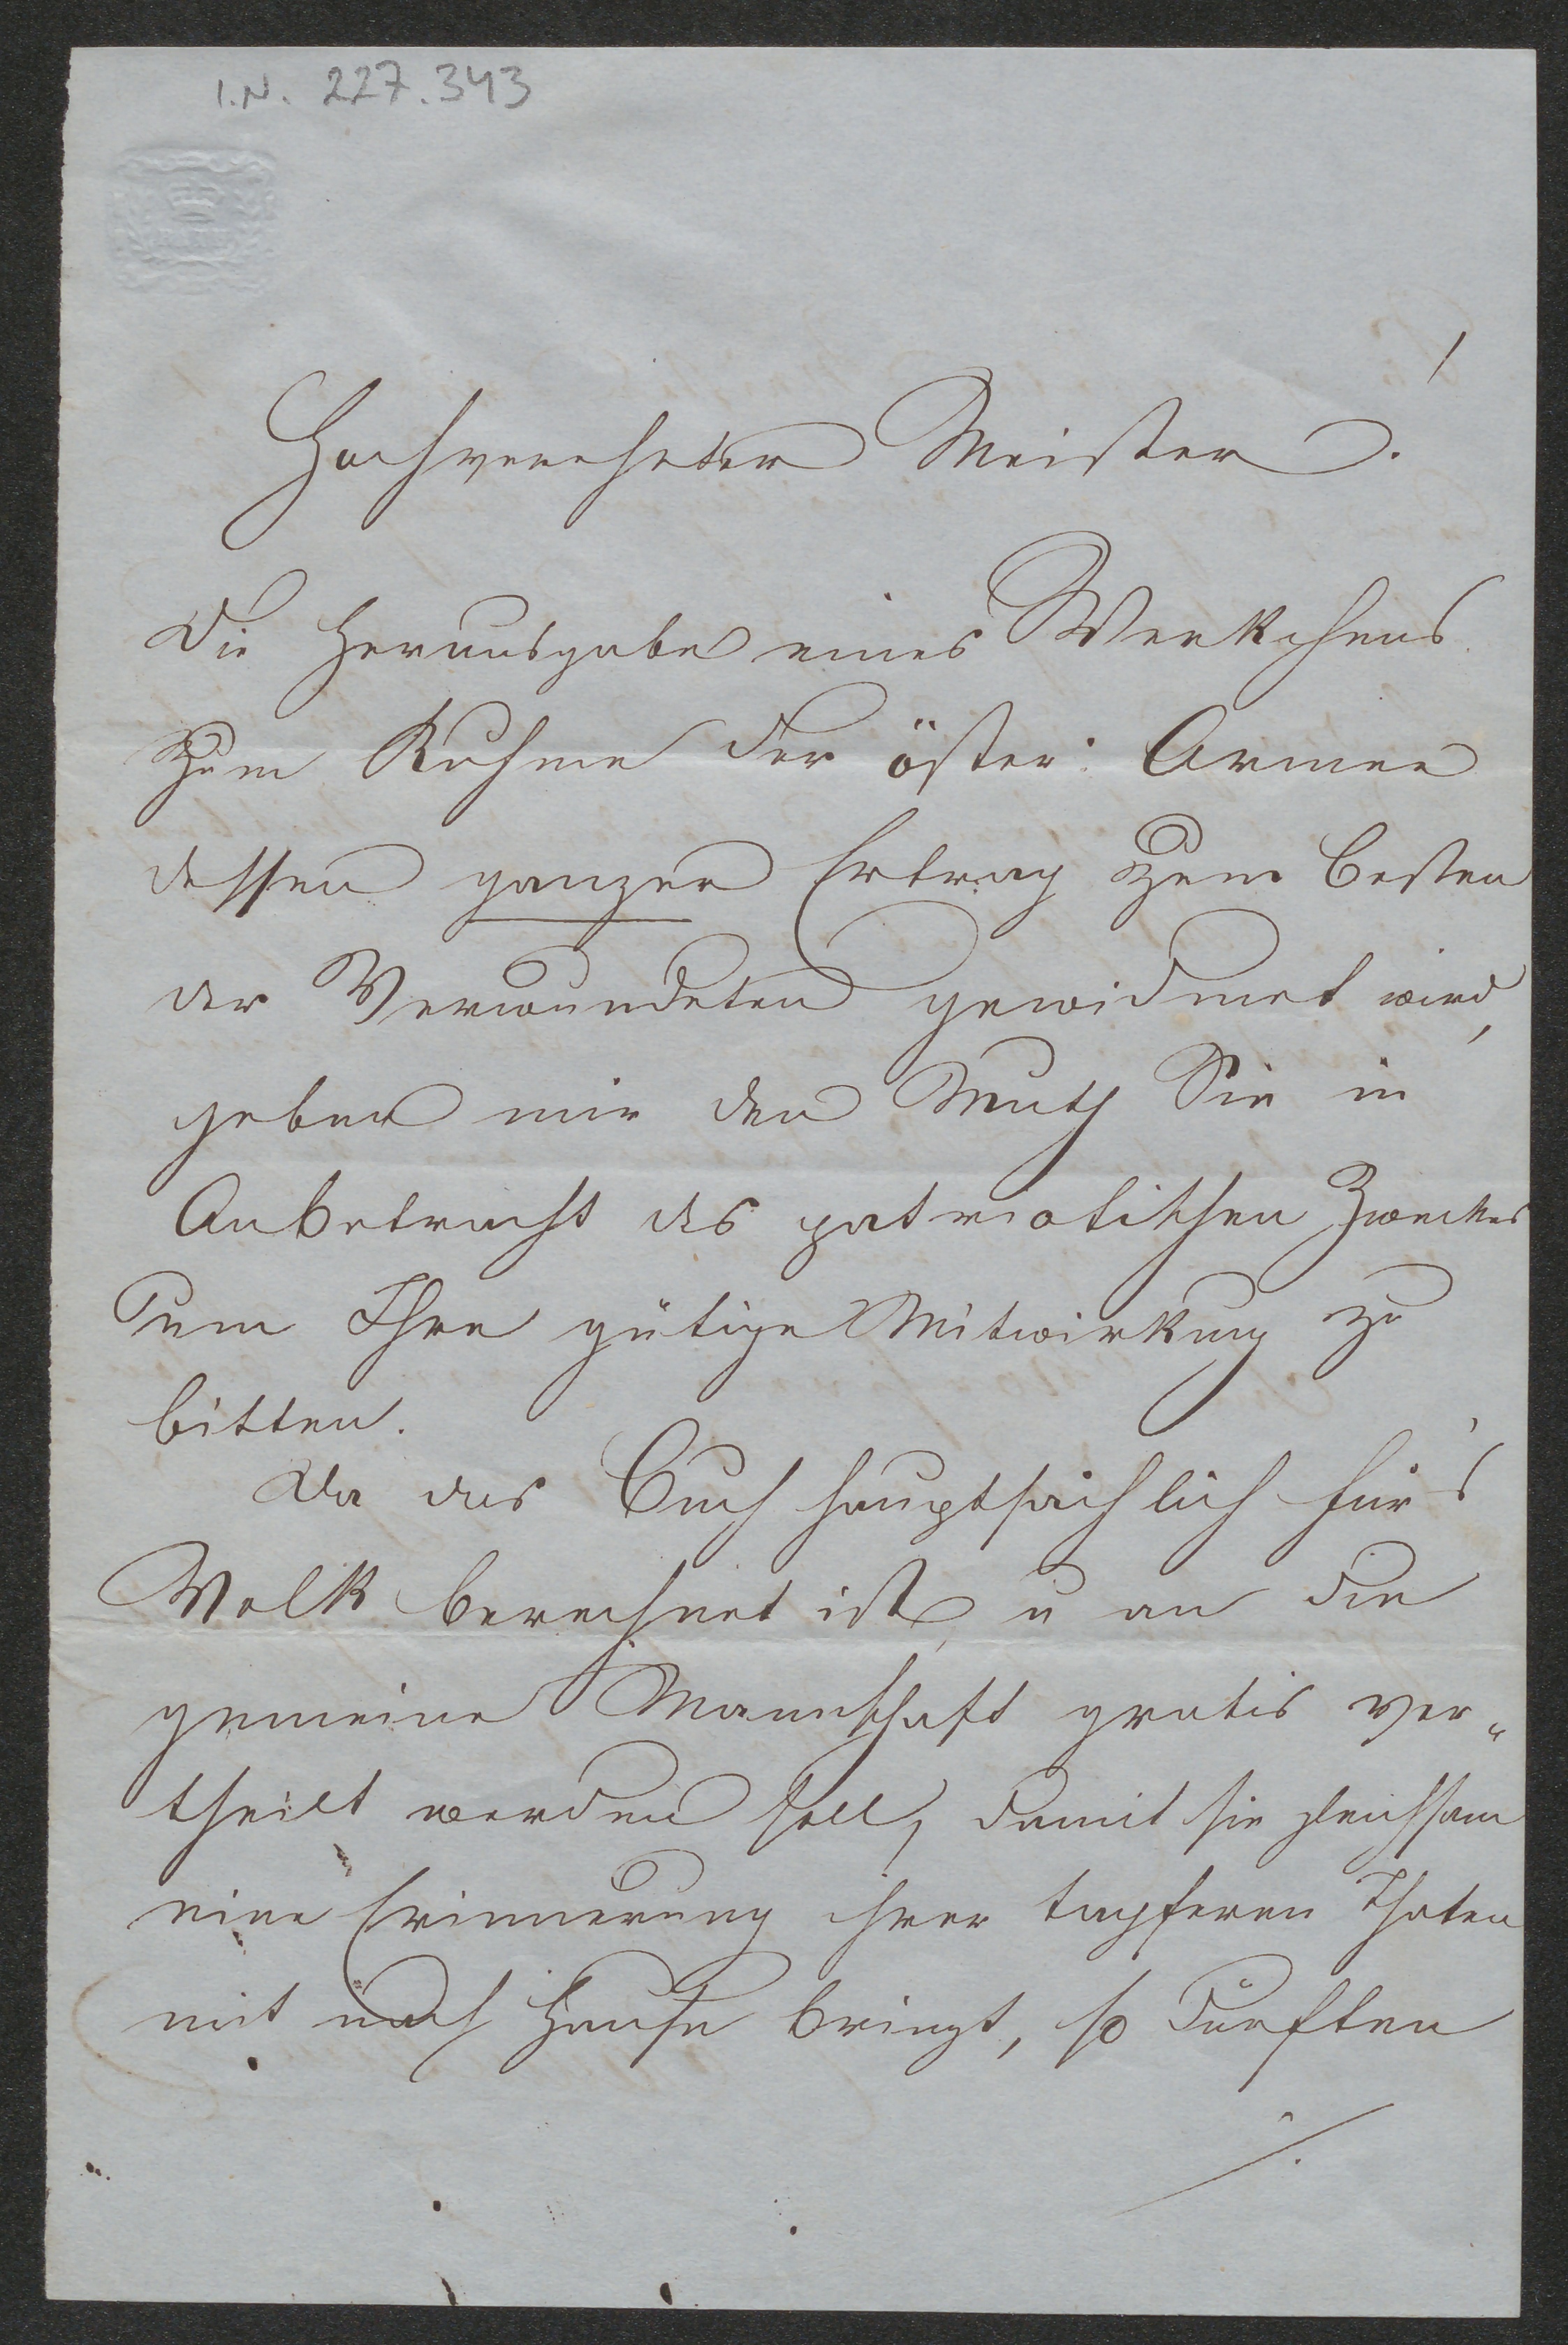 I.N. 227.343
Hochverehrter Meister!
Die Herausgabe eines Werkchens
zum Ruhme der öster: Armee
dessen ganzer Ertrag zum Besten
der Verwundeten gewidmet wird,
geben mir den Muth Sie in
Anbetracht des patriotischen Zweckes
um Ihre gütige Mitwirkung zu
bitten.
Da das Buch hauptsächlich für's
Volk berechnet ist, u an die
gemeine Mannschaft gratis ver-
theilt werden soll, damit sie gleichsam
eine Erinnerung ihrer tapferen Thaten
mit nach Hause bringt, so dürften
./.